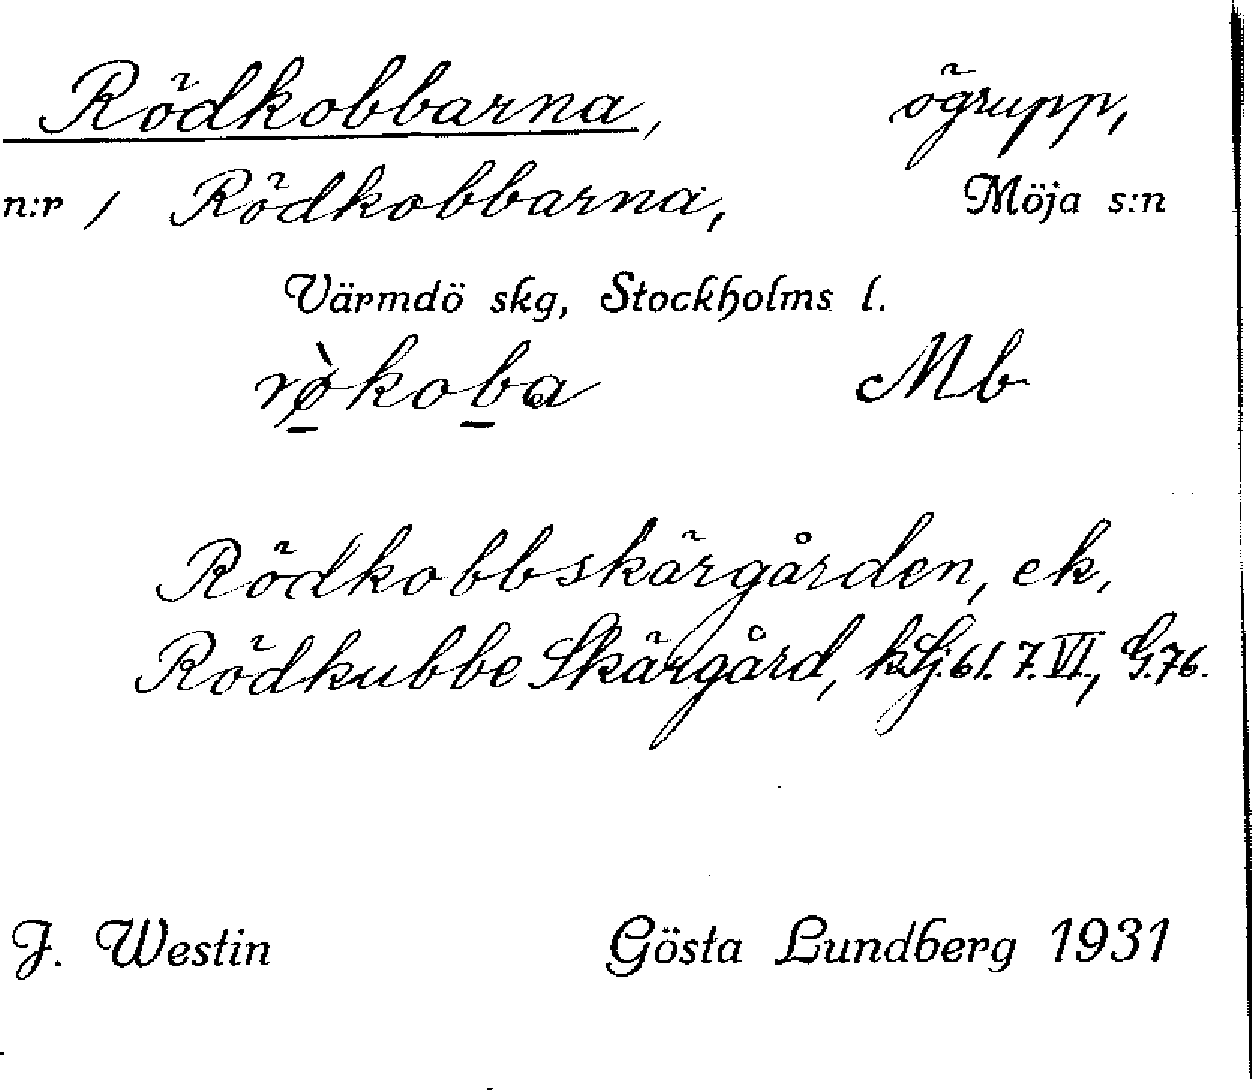 Rödkobbarna, ögrupp,
n:r / Rödkobbarna, Möja s:n
Värmdö skg, Stockholms l.
rø̀koba Mb
Rödkobbskärgården, ek,
Rödkubbe Skärgård, kLj. 61. 7. VI, G.76.
J. Westin Gösta Lundberg 1931